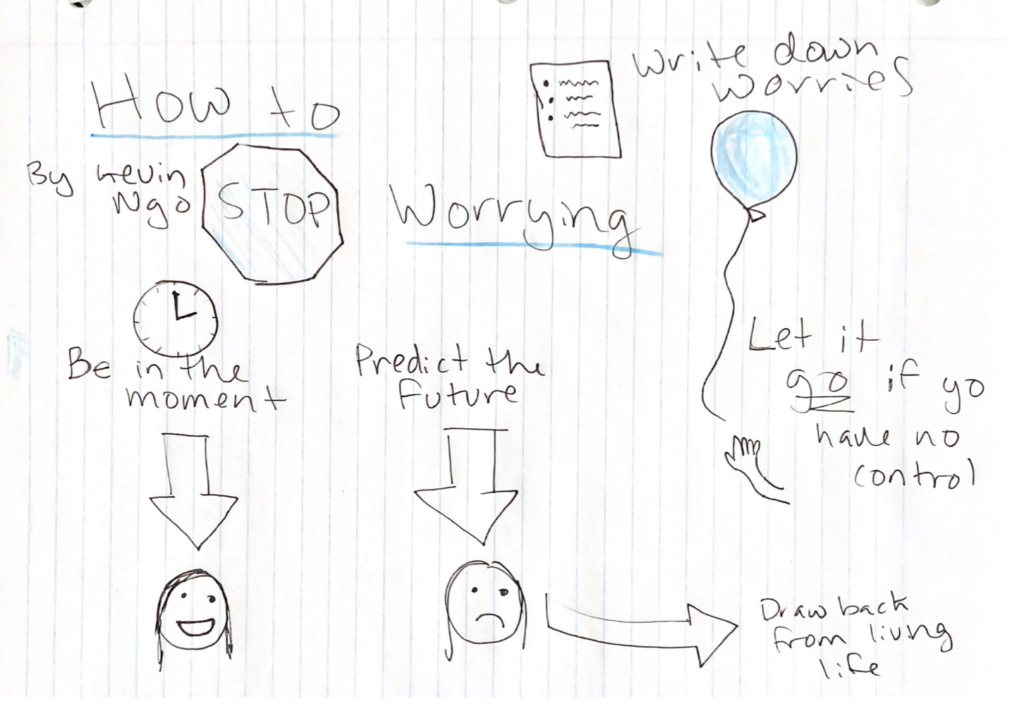 How to
By Kevin
Ngo
STOP
Worrying
Write down
worries
Be in the
moment
Predict the
future
Let it
go if yo
have no
control
Draw back
from living
life